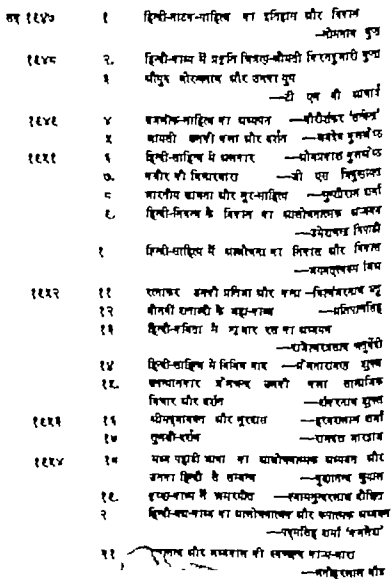 सन् १९४७ १ हिन्दी-नाटक-साहित्य का इतिहास और विकास
—सोमनाथ गुप्त
१९४८ २. हिन्दी-काव्य में प्रकृति चित्रण-श्रीमती किरनकुमारी गुप्ता
३ श्रीयुत गोरखनाथ और उनका युग
—टी एन वी आचार्य
१९४९ ४ ब्रजलोक-साहित्य का अध्ययन —गौरीशंकर 'सत्येन्द्र'
५ जायसी उनकी कला और दर्शन —जयदेव कुलश्रेष्ठ
१९५१ ६ हिन्दी-साहित्य में अलंकार —ओमप्रकाश कुलश्रेष्ठ
७. कबीर की विचारधारा —जी एस त्रिगुणायत
८ भारतीय साधना और सूर-साहित्य —मुन्शीराम शर्मा
९. हिन्दी-निबन्ध के विकास का आलोचनात्मक अध्ययन
—उमेशचन्द्र त्रिपाठी
१ हिन्दी-साहित्य में आलोचना का निकास और विकास
—भगवत्स्वरूप मिश्र
१९५२ ११ रत्नाकर उनकी प्रतिभा और कला —विश्वम्भरनाथ भट्ट
१२ बीसवीं शताब्दी के महा-काव्य —प्रतिपालसिंह
१३ हिन्दी-कविता में शृंगार रस का अध्ययन
—राजेश्वरप्रसाद चतुर्वेदी
१४ हिन्दी-साहित्य में विविध वाद —प्रेमनारायण शुक्ल
१५. उपन्यासकार प्रेमचन्द उनकी कला सामाजिक
विचार और दर्शन —शंकरनाथ शुक्ल
१९५३ १६ श्रीमद्भागवत और सूरदास —हरवंशलाल शर्मा
१७ तुलसी-दर्शन —रामदत्त भारद्वाज
१९५४ १८ मध्य पहाड़ी भाषा का आलोचनात्मक अध्ययन और
उसका हिन्दी से सम्बन्ध —गुणानन्द जुयाल
१९. कृष्ण-काव्य में भ्रमरगीत —श्यामसुन्दरलाल दीक्षित
२ हिन्दी-गद्य-काव्य का आलोचनात्मक और रूपात्मक अध्ययन
—पद्मसिंह शर्मा 'कमलेश'
२१ और मध्यकाल की स्वच्छन्द काव्य-धारा
—मनोहरलाल गौड़